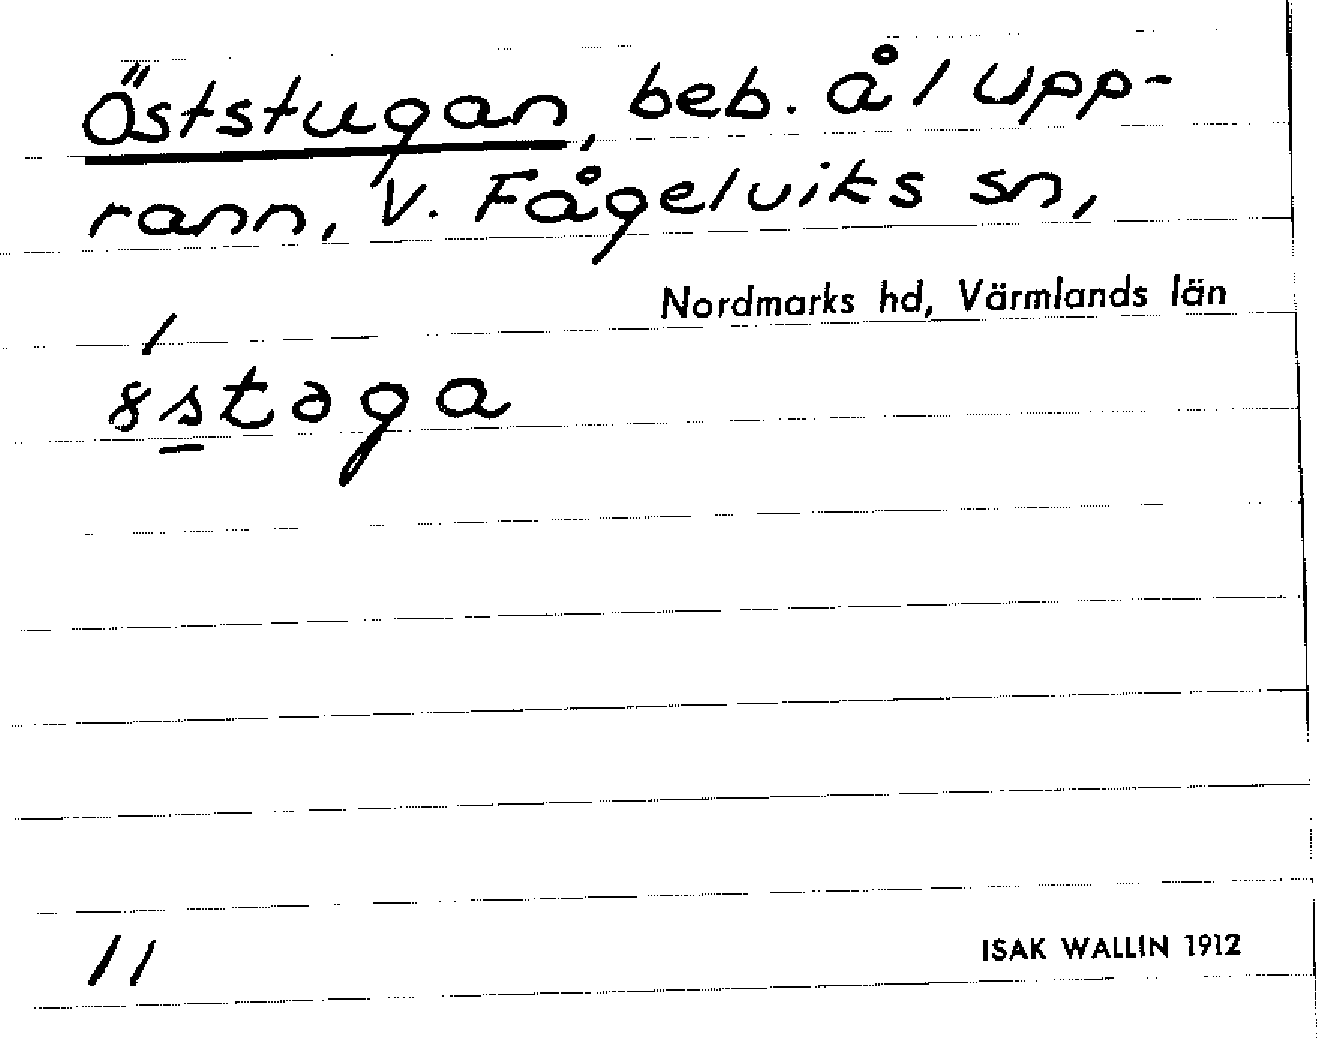 Öststugan, beb. å l Upp-
rann, V. Fågelviks sn,
Nordmarks hd, Värmlands län
ISAK WALLIN 1912